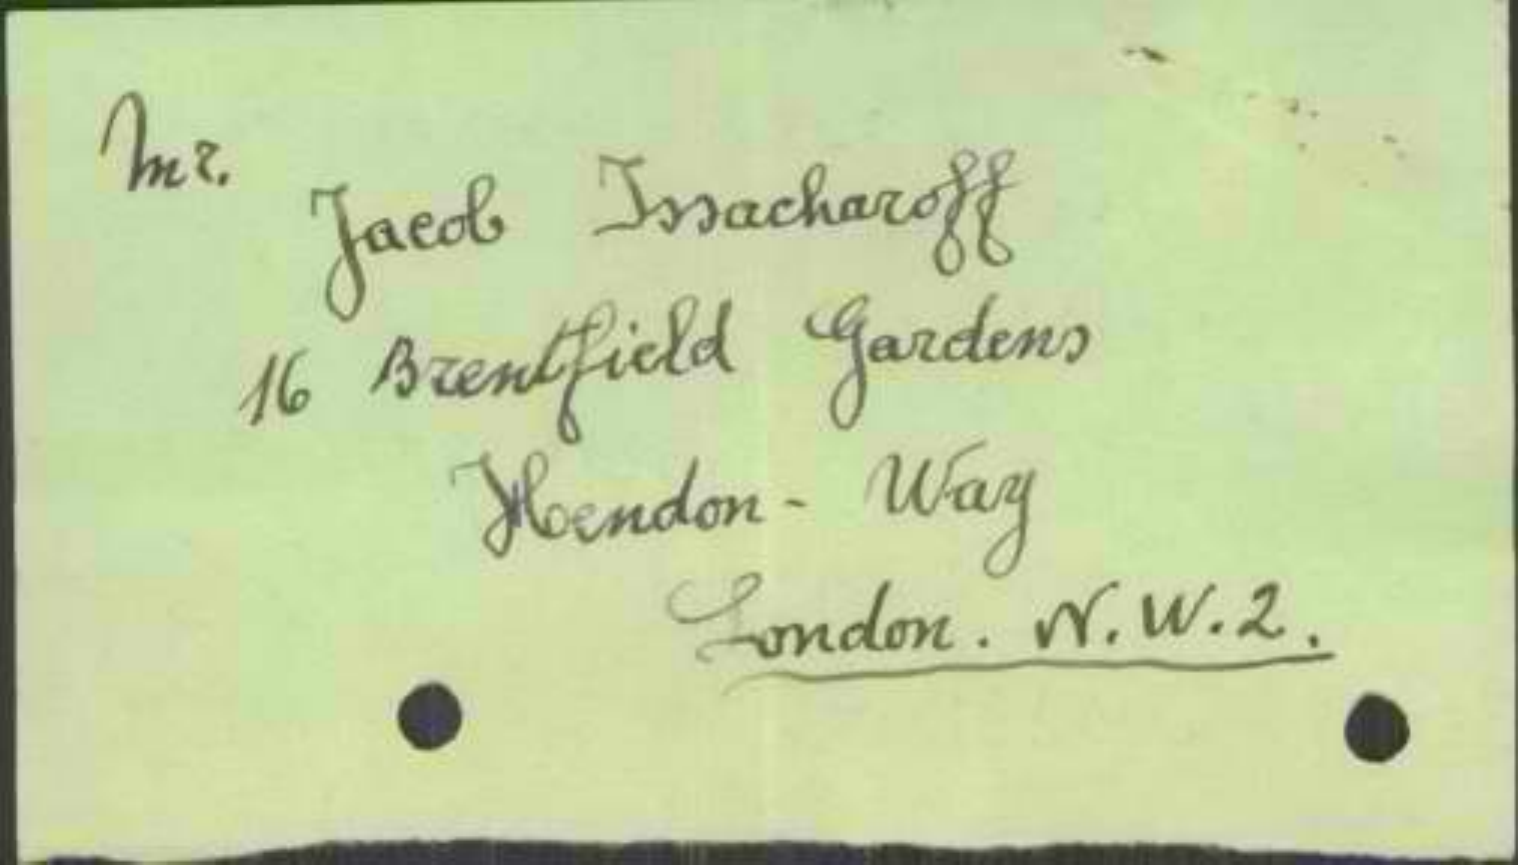 Mr.
Jacob Issacharoff
16 Brentfield Gardens
Hendon - Way
London. N.W.2.